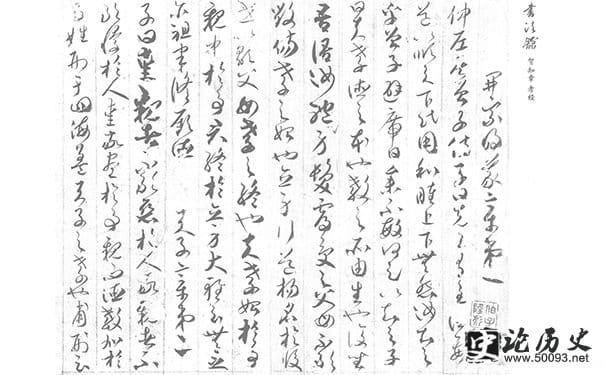 賀知章孝經
開宗明義章第一
仲尼居曾子侍子曰先王有至德要
道以順天下民用和睦上下無怨汝知之
乎曾子避席曰參不敏何足以知之子
曰夫孝德之本也教之所由生也復坐
吾語汝身體髮膚受之父母不敢
毀傷孝之始也立身行道揚名於後
世以顯父母孝之終也夫孝始於事
親中於事君終於立身大雅云無念
尒祖聿脩厥德 天子章第二
子曰愛親者不敢惡於人敬親者不
敢慢於人愛敬盡於事親而德教加於
百姓刑于四海蓋天子之孝也甫刑云
论历史
www.50093.net